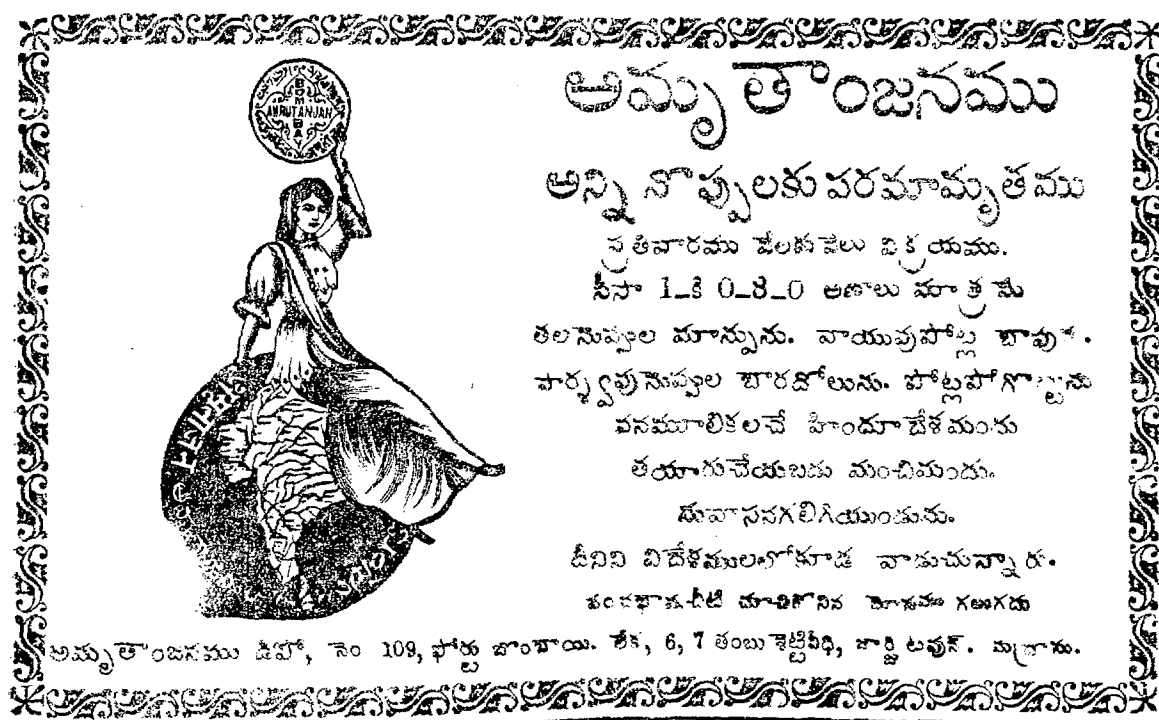 BOMBAY
AMRUTANJAN
అమృతాంజనము
అన్ని నొప్పులకు పరమామృతము
ప్రతివారము వేలకువేలు విక్రయము.
సీసా 1_కి 0_8_0 అణాలు మాత్రమే
తలనొప్పుల మాన్పును. వాయువుపోట్ల బాపును.
పార్శ్వపునొప్పుల బారదోలును. పోట్లపోగొట్టును
వనమూలికలచే హిందూదేశమందు
తయారుచేయబడు మంచిమందు.
సువాసనగలిగియుండును.
దీనిని విదేశములలోకూడ వాడుచున్నారు.
గలుగదు
అమృతాంజనము డిపో, నెం 109, ఫోర్టు బొంబాయి. లేక, 6, 7 తంబుశెట్టివీధి, జార్జిటవున్. మద్రాసు.